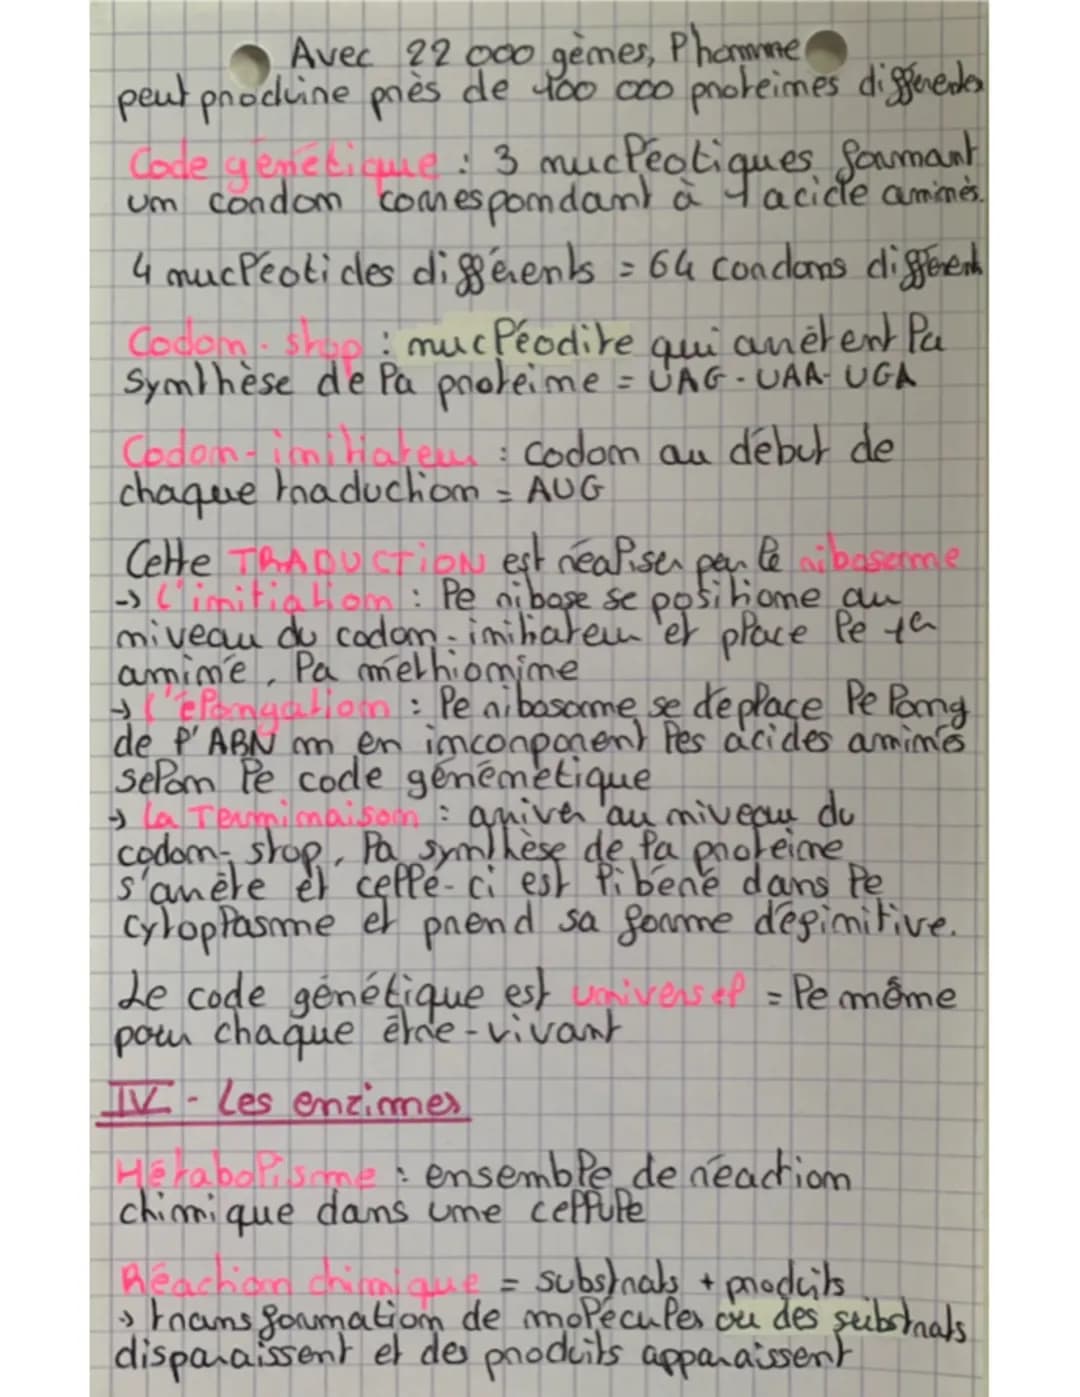 Avec 22 000 gènes, l'homme
peut produire près de 400 000 proteines differentes
Code génétique : 3 nucléotiques formant
un condon correspondant à 1 acide aminés.
4 nucléotides différents = 64 condons différent
Codon-stop : nucléodite qui arrêtent la
synthèse de la proteine = UAG-UAA-UGA
Codon-initiateur : codon au début de
chaque traduction = AUG
Cette TRADUCTION est réaliser par le ribosome
-> L'initiation : le ribose se positione au
niveau du codon-initiateur et place le 1er
aminé, la méthionine
-> L'élongation : le ribosome se déplace le long
de l'ARN m en inconporent les acides aminés
selon le code génémétique
-> La Terminaison : arriver au niveau du
codon-stop, la synthèse de la proteine
s'arrête et celle-ci est libéré dans le
cytoplasme et prend sa forme définitive.
Le code génétique est universel = le même
pour chaque être-vivant
IV - Les enzimes
Métabolisme : ensemble de réaction
chimique dans une cellule
Réaction chimique = substrats + produits
-> transformation de molécules ou des substrats
disparaissent et des produits apparaissent